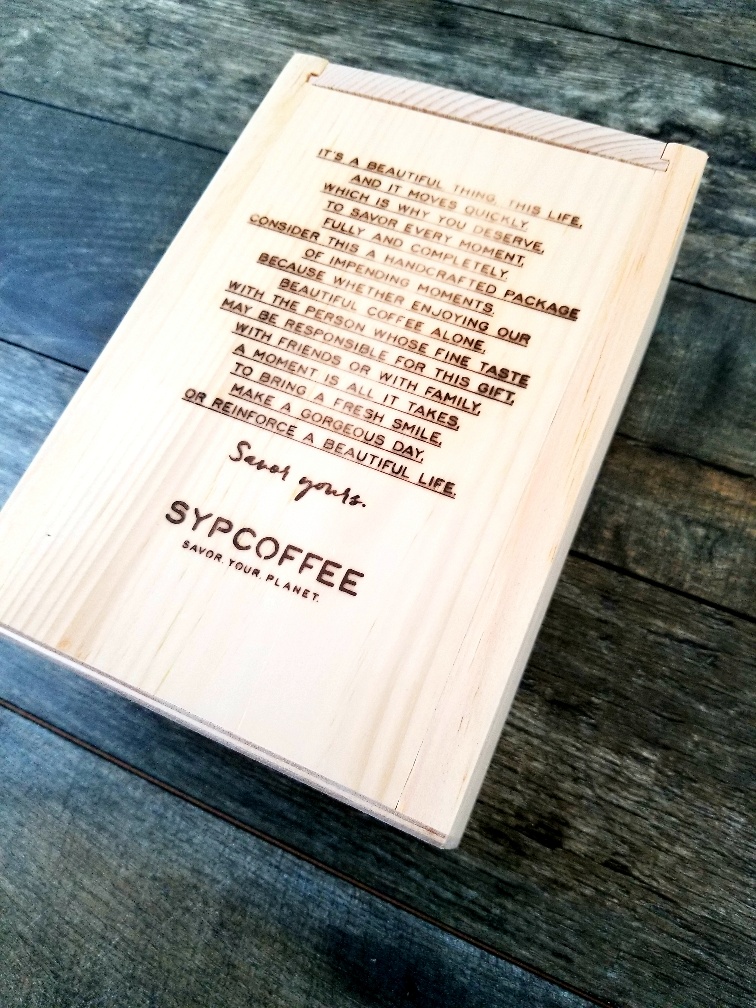 IT'S A BEAUTIFUL THING, THIS LIFE,
AND IT MOVES QUICKLY,
WHICH IS WHY YOU DESERVE,
TO SAVOR EVERY MOMENT,
FULLY AND COMPLETELY.
CONSIDER THIS A HANDCRAFTED PACKAGE
OF IMPENDING MOMENTS.
BECAUSE WHETHER ENJOYING OUR
BEAUTIFUL COFFEE ALONE,
WITH THE PERSON WHOSE FINE TASTE
MAY BE RESPONSIBLE FOR THIS GIFT,
WITH FRIENDS OR WITH FAMILY,
A MOMENT IS ALL IT TAKES,
TO BRING A FRESH SMILE,
MAKE A GORGEOUS DAY,
OR REINFORCE A BEAUTIFUL LIFE.
Savor yours.
SYPCOFFEE
SAVOR. YOUR. PLANET.